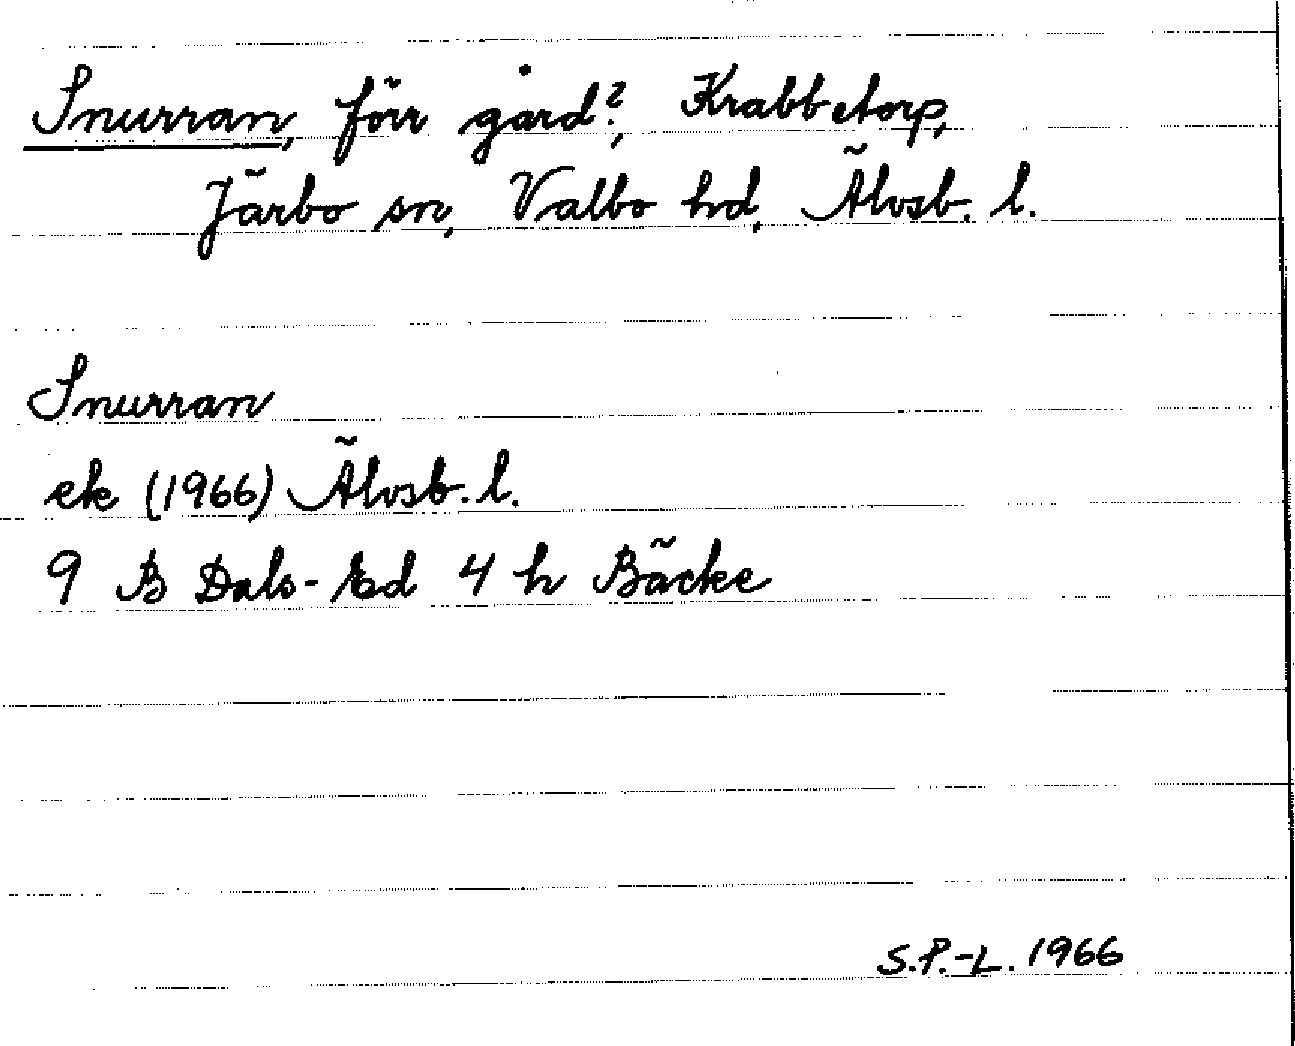 Snurran, förr gård?, Krabbetorp,
Järbo sn, Valbo hd, Älvsb. l.
Snurran
ek (1966) Älvsb. l.
9 B Dals-Ed 4 h Bäcke
S.P.-L. 1966